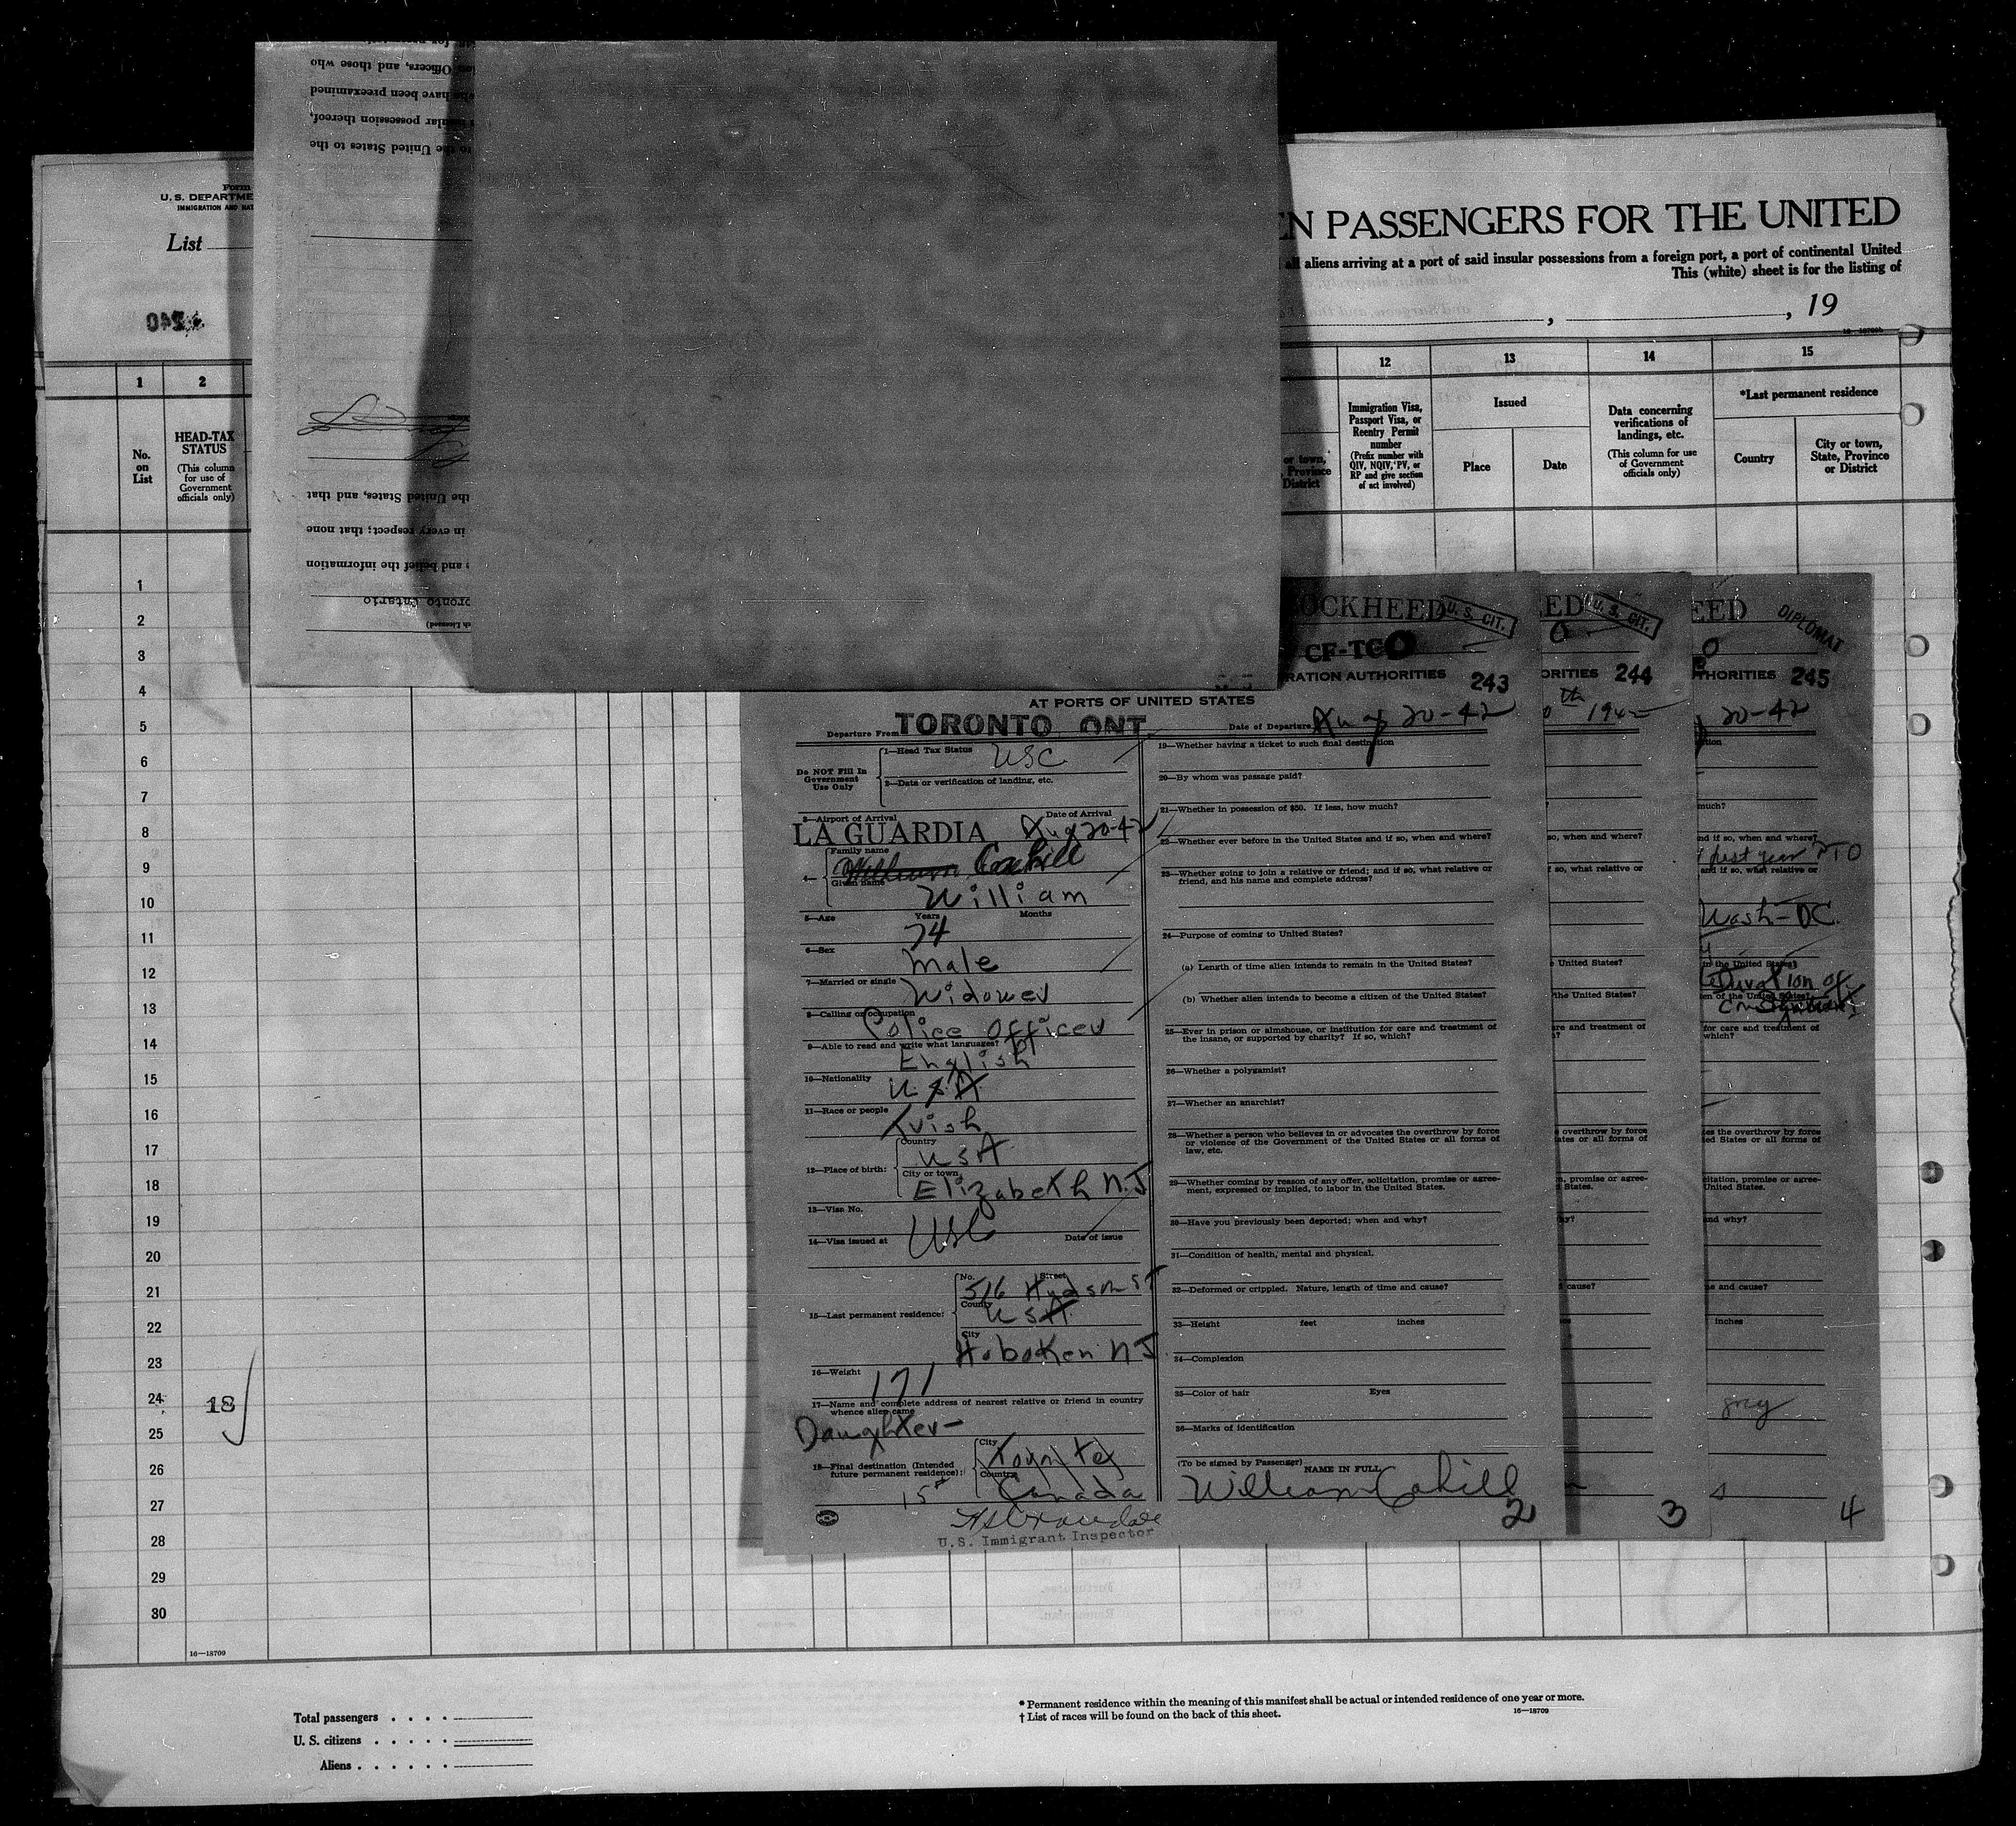 Form
U. S. DEPARTME
IMMIGRATION AND NAT
List
240
EN PASSENGERS FOR THE UNITED
all aliens arriving at a port of said insular possessions from a foreign port, a port of continental United
This (white) sheet is for the listing of
, , 19
Officers, and those who
have been preexamined
possession thereof,
the United States to the
the United States, and that
in every respect; that none
and belief the information
Toronto Ontario
1
2
12
13
14
15
No.
on
List
HEAD-TAX
STATUS
(This column
for use of
Government
officials only)
or town,
Province
District
Immigration Visa,
Passport Visa, or
Reentry Permit
number
(Prefix number with
QIV, NQIV, PV, or
RP and give section
of act involved)
Issued
Place
Date
Data concerning
verifications of
landings, etc.
(This column for use
of Government
officials only)
*Last permanent residence
Country
City or town,
State, Province
or District
1
2
3
4
5
6
7
8
9
10
11
12
13
14
15
16
17
18
19
20
21
22
23
24
25
26
27
28
29
30
18
16—18709
OCKHEED
U. S. CIT.
CF-TCO
RATION AUTHORITIES 243
AT PORTS OF UNITED STATES
Departure From TORONTO ONT.
Date of Departure Aug 20-42
Do NOT Fill In
Government
Use Only
1—Head Tax Status
USC
2—Data or verification of landing, etc.
3—Airport of Arrival
Date of Arrival
LA GUARDIA Aug 20-42
4—
Family name
William Cahill
Given name
William
5—Age Years Months
74
6—Sex
Male
7—Married or single
Widower
8—Calling or occupation
Police Officer
9—Able to read and write what languages?
English
10—Nationality
U.S.A
11—Race or people
Irish
12—Place of birth:
Country
USA
City or town
Elizabeth N.J
13—Visa No.
USC
14—Visa issued at
Date of issue
15—Last permanent residence:
No. Street
516 Hudson ST
Country
USA
City
Hoboken NJ
16—Weight
171
17—Name and complete address of nearest relative or friend in country
whence alien came
Daughter—
18—Final destination (Intended
future permanent residence):
City
Country
Canada
U.S. Immigrant Inspector
19—Whether having a ticket to such final destination
20—By whom was passage paid?
21—Whether in possession of $50. If less, how much?
22—Whether ever before in the United States and if so, when and where?
23—Whether going to join a relative or friend; and if so, what relative or
friend, and his name and complete address?
24—Purpose of coming to United States?
(a) Length of time alien intends to remain in the United States?
(b) Whether alien intends to become a citizen of the United States?
25—Ever in prison or almshouse, or institution for care and treatment of
the insane, or supported by charity? If so, which?
26—Whether a polygamist?
27—Whether an anarchist?
28—Whether a person who believes in or advocates the overthrow by force
or violence of the Government of the United States or all forms of
law, etc.
29—Whether coming by reason of any offer, solicitation, promise or agree-
ment, expressed or implied, to labor in the United States.
30—Have you previously been deported; when and why?
31—Condition of health, mental and physical.
32—Deformed or crippled. Nature, length of time and cause?
33—Height feet inches
34—Complexion
35—Color of hair Eyes
36—Marks of identification
(To be signed by Passenger) NAME IN FULL
William Cahill
2
ED
U. S. CIT.
ORITIES 244
th 1942
so, when and where?
so, what relative or
United States?
the United States?
are and treatment of
overthrow by force
ates or all forms of
n, promise or agree-
States.
cause?
3
EED
DIPLOMAT
THORITIES 245
20-42
much?
nd if so, when and where?
past year
and if so, what relative or
Wash-DC.
in the United States?
Duration of
en of the United States?
for care and treatment of
which?
es the overthrow by force
ted States or all forms of
citation, promise or agree-
United States.
and why?
e and cause?
inches
grey
4
Total passengers . . . .
U. S. citizens . . . . .
Aliens . . . . . .
* Permanent residence within the meaning of this manifest shall be actual or intended residence of one year or more.
† List of races will be found on the back of this sheet.
16—18709